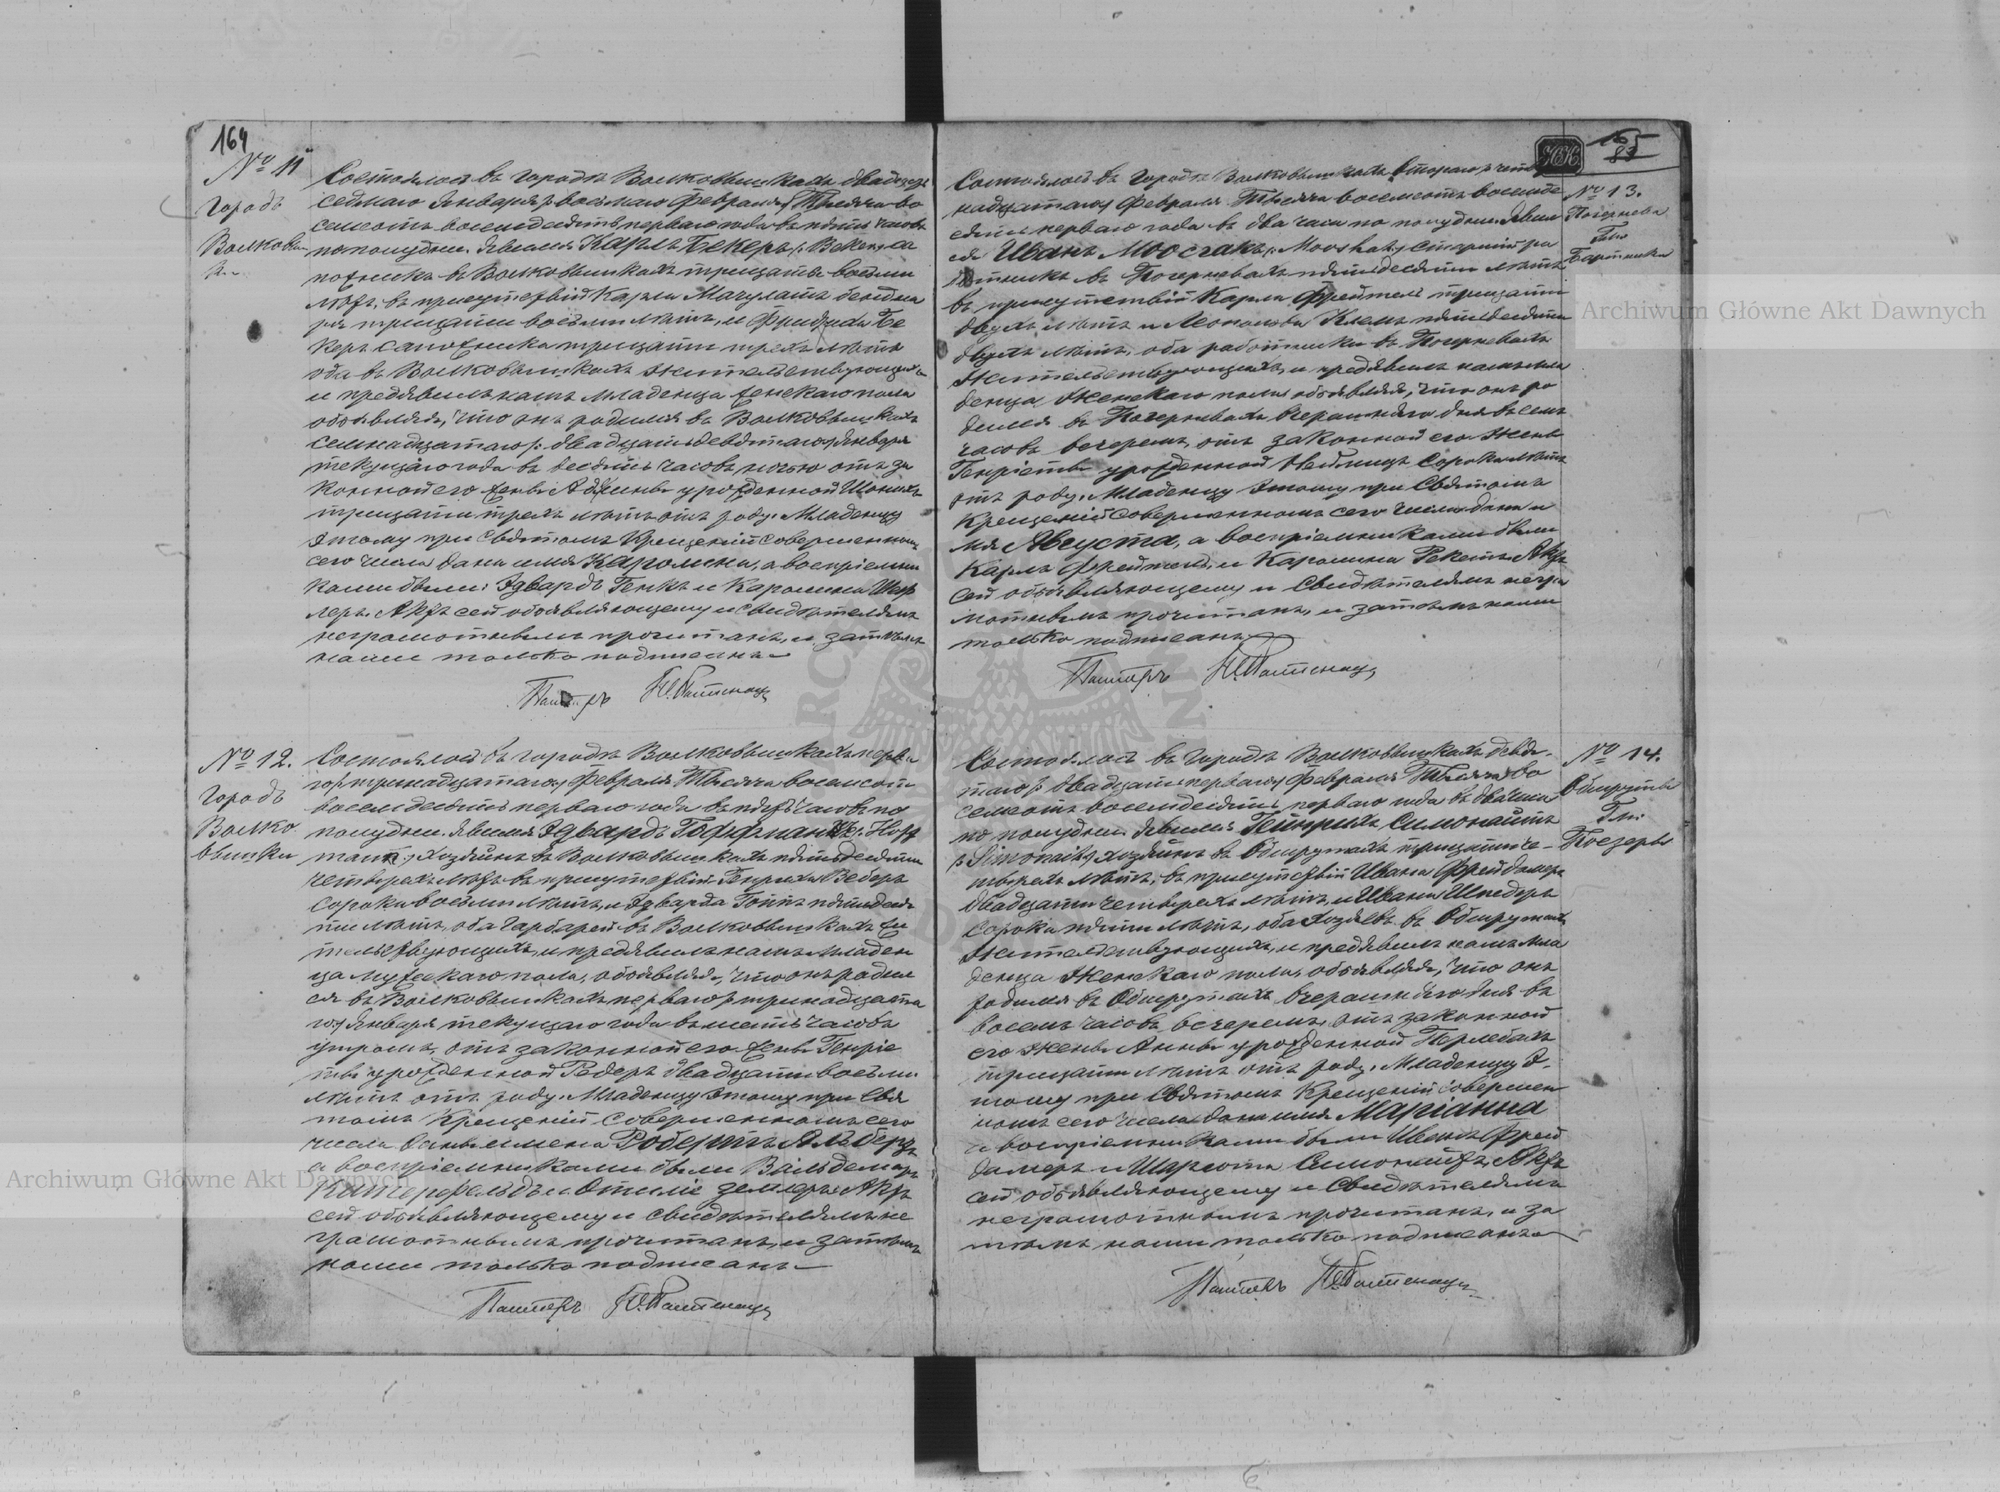 164
№ 11
Городъ
Волковыш
ки
Состоялось въ городѣ Волковышкахъ двадцать
седьмаго Января /: восьмаго Февраля :/ Тысяча во
семьсотъ восемдесятъ перваго года въ пять часовъ
пополудни. Явился Карлъ Бекеръ, /: Beker са
пожникъ въ Волковышкахъ тридцати восьми
лѣтъ, въ присутствіи Карла Мачулатъ
тридцати восьми лѣтъ, и Фридриха Бе
керъ сапожника тридцати трехъ лѣтъ
оба въ Волковышкахъ жительствующихъ
и предявилъ намъ младенца женскаго пола
объявляя, что онъ родился въ Волковышкахъ
семнадцатаго /: двадцать девятаго :/ Января
текущаго года въ десять часовъ ночью отъ за
конной его жены урожденной
тридцати трехъ лѣтъ отъ роду. Младенцу
этому при Святомъ Крещеніи совершенномъ
сего числа дано имя Каролина, а воспріемни
ками были: Эдвардъ Генкъ и Каролина
Актъ сей объявляющему и свидѣтелямъ
неграмотнымъ прочитанъ, и затѣмъ
нами только подписанъ.
Пасторъ
№ 12.
Городъ
Волко
вышки
Состоялось въ городѣ Волковышкахъ перва
го /: тринадцатаго :/ Февраля Тысяча восемсотъ
восемдесятъ перваго года въ пять часовъ по
полудни. Явился Эдвардъ Гоффманъ /: Hoff
mann :/, хозяинъ въ Волковышкахъ пятьдесяти
четырехъ лѣтъ въ присутствіи Генриха Веберъ
сорока восьми лѣтъ, и Эдварда Гоппъ пятидеся
ти лѣтъ, оба гарбарей въ Волковышкахъ жи
тельствующихъ, и предявилъ намъ младен
ца мужескаго пола, объявляя, что онъ родил
ся въ Волковышкахъ перваго /: тринадцата
го :/ Января текущаго года въ шесть часовъ
утромъ, отъ законной его жены Генріе
ты урожденной Редеръ двадцати восьми
лѣтъ отъ роду. Младенцу этому при Свя
томъ Крещеніи совершенномъ сего
числа даны имена Робертъ Альбертъ
а воспріемниками были Вальдемаръ
Катерфельдъ и Отиліе Актъ
сей объявляющему и свидѣтелямъ не
грамотнымъ прочитанъ, и затѣмъ
нами только подписанъ.
Пасторъ
165
83
№ 13.
Гми
Бартники
Состоялось въ городѣ Волковышкахъ втораго /: четыр
надцатаго :/ Февраля Тысяча восемсотъ восемде
сятъ перваго года въ два часа по полудни. Явил
ся Иванъ Моосгакъ, /: Mooshak :/ старшій ра
ботникъ въ пятидесяти лѣтъ
въ присутствіи Карла Фрейтель тридцати
двухъ лѣтъ и Леопольда Клемъ пятидесяти
двухъ лѣтъ, оба работники въ
жительствующихъ, и предявилъ намъ мла
денца женскаго пола объявляя, что онъ ро
дился въ вчерашняго дня въ семь
часовъ вечеромъ, отъ законной его жены
Генріеты урожденной сорока лѣтъ
отъ роду. Младенцу этому при Святомъ
Крещеніи совершенномъ сего числа дано и
мя Августа, а воспріемниками были
Карлъ Фрейтель, и Каролина Актъ
сей объявляющему и свидѣтелямъ негра
мотнымъ прочитанъ, и затѣмъ нами
только подписанъ.
Пасторъ
№ 14.
Обшруты
Гми
Поезеры
Состоялось въ городѣ Волковышкахъ девя
таго /: двадцать перваго :/ Февраля Тысяча во
семсотъ восемдесятъ перваго года въ два часа
по полудни. Явился Генрихъ Симонайтъ
/: Simonait :/ хозяинъ въ Обшрутахъ тридцати че
тырехъ лѣтъ, въ присутствіи Ивана Фрейдамеръ
двадцати четырехъ лѣтъ, и Ивана Шнедеръ
сорока пяти лѣтъ, оба хозяевъ въ Обшрутахъ
жительствующихъ, и предявилъ намъ мла
денца женскаго пола, объявляя, что онъ
родился въ Обшрутахъ вчерашняго дня въ
восемь часовъ вечеромъ, отъ законной
его жены Анны урожденной Перлебахъ
тридцати лѣтъ отъ роду. Младенцу э
тому при Святомъ Крещеніи совершен
номъ сего числа дано имя Маріанна
а воспріемниками были Иванъ Фрей
дамеръ и Шарлота Симонайтъ, Актъ
сей объявляющему и свидѣтелямъ
неграмотнымъ прочитанъ, и за
тѣмъ нами только подписанъ.
Пасторъ
Archiwum Główne Akt Dawnych
Archiwum Główne Akt Dawnych